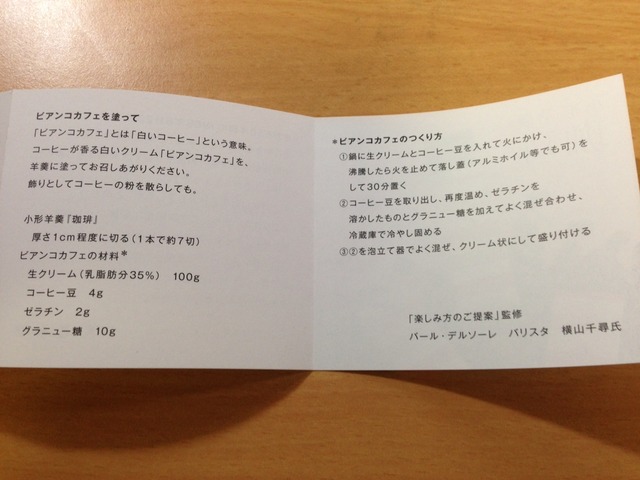 ビアンコカフェを塗って
「ビアンコカフェ」とは「白いコーヒー」という意味。
コーヒーが香る白いクリーム「ビアンコカフェ」を、
羊羹に塗ってお召しあがりください。
飾りとしてコーヒーの粉を散らしても。
小形羊羹『珈琲』
厚さ1cm程度に切る（1本で約7切）
ビアンコカフェの材料*
生クリーム（乳脂肪分35%） 100g
コーヒー豆 4g
ゼラチン 2g
グラニュー糖 10g
*ビアンコカフェのつくり方
①鍋に生クリームとコーヒー豆を入れて火にかけ、
沸騰したら火を止めて落し蓋（アルミホイル等でも可）を
して30分置く
②コーヒー豆を取り出し、再度温め、ゼラチンを
溶かしたものとグラニュー糖を加えてよく混ぜ合わせ、
冷蔵庫で冷やし固める
③②を泡立て器でよく混ぜ、クリーム状にして盛り付ける
「楽しみ方のご提案」監修
バール・デルソーレ バリスタ 横山千尋氏